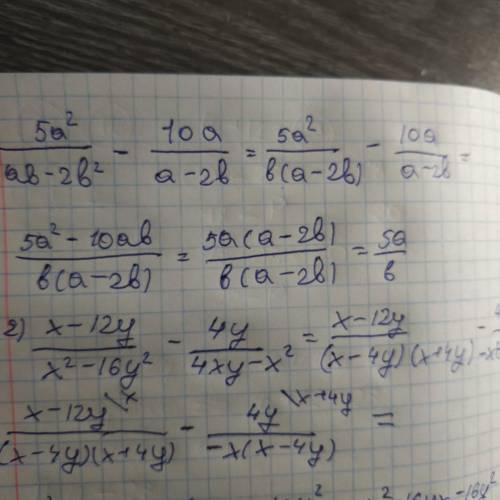 5a²/(ab-2b²) - 10a/(a-2b) = 5a²/(b(a-2b)) - 10a/(a-2b) =
(5a²-10ab)/(b(a-2b)) = 5a(a-2b)/(b(a-2b)) = 5a/b
2) (x-12y)/(x²-16y²) - 4y/(4xy-x²) = (x-12y)/((x-4y)(x+4y)) -
(x-12y)\x/((x-4y)(x+4y)) - 4y\x+4y/(-x(x-4y)) =